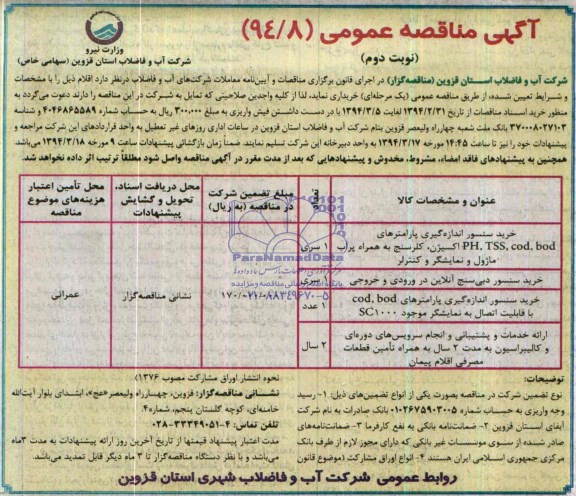 آگهی مناقصه عمومی (۹۴/۸)
(نوبت دوم)
وزارت نیرو
شرکت آب و فاضلاب استان قزوین (سهامی خاص)
شرکت آب و فاضلاب استان قزوین (مناقصه‌گزار) در اجرای قانون برگزاری مناقصات و آیین‌نامه معاملات شرکت‌های آب و فاضلاب درنظر دارد اقلام ذیل را با مشخصات
و شرایط تعیین شده، از طریق مناقصه عمومی (یک مرحله‌ای) خریداری نماید، لذا از کلیه واجدین صلاحیتی که تمایل به شرکت در این مناقصه را دارند دعوت می‌گردد به
منظور خرید اسناد مناقصات از تاریخ ۱۳۹۴/۲/۳۱ لغایت ۱۳۹۴/۳/۵ با در دست داشتن فیش واریزی به مبلغ ۳۰۰,۰۰۰ ریال به حساب شماره ۴۰۴۶۸۶۵۵۸۹ و شناسه
۳۷۰۰۰۸۰۲۷۱۰۳ بانک ملت شعبه چهارراه ولیعصر قزوین بنام شرکت آب و فاضلاب استان قزوین در ساعات اداری روزهای غیر تعطیل به واحد قراردادهای این شرکت مراجعه و
پیشنهادات خود را نیز تا ساعت ۱۴:۴۵ مورخه ۱۳۹۴/۳/۱۷ به واحد دبیرخانه این شرکت تسلیم نمایند. ضمناً زمان بازگشائی پیشنهادات ساعت ۹ مورخه ۱۳۹۴/۳/۱۸ می‌باشد.
همچنین به پیشنهادهای فاقد امضاء، مشروط، مخدوش و پیشنهادهایی که بعد از مدت مقرر در آگهی مناقصه واصل شود مطلقاً ترتیب اثر داده نخواهد شد.
عنوان و مشخصات کالا
مبلغ تضمین شرکت در مناقصه (به ریال)
محل دریافت اسناد، تحویل و گشایش پیشنهادات
محل تأمین اعتبار هزینه‌های موضوع مناقصه
خرید سنسور اندازه‌گیری پارامترهای
PH, TSS, cod, bod اکسیژن، کلرسنج به همراه پراب
ماژول و نمایشگر و کنترلر
۱ سری
خرید سنسور دبی‌سنج آنلاین در ورودی و خروجی
سری
خرید سنسور اندازه‌گیری پارامترهای cod, bod
با قابلیت اتصال به نمایشگر موجود SC۱۰۰۰
۱ عدد
ارائه خدمات و پشتیبانی و انجام سرویس‌های دوره‌ای
و کالیبراسیون به مدت ۲ سال به همراه تأمین قطعات
مصرفی اقلام پیمان
۲ سال
نشانی مناقصه‌گزار
عمرانی
ParsNamadData
۰۲۱-۸۸۳۴۹۶۷۰-۵
توضیحات:
نوع تضمین شرکت در مناقصه بصورت یکی از انواع تضمین‌های ذیل: ۱- رسید
وجه واریزی به حساب شماره ۰۱۰۲۶۷۵۹۰۳۰۰۵ بانک صادرات به نام شرکت
آبفای استان قزوین ۲- ضمانت‌نامه بانکی به نفع کارفرما ۳- ضمانت‌نامه‌های
صادر شده از سوی موسسات غیر بانکی که دارای مجوز لازم از طرف بانک
مرکزی جمهوری اسلامی ایران هستند ۴- انواع اوراق مشارکت (موضوع قانون
نحوه انتشار اوراق مشارکت مصوب ۱۳۷۶)
نشانی مناقصه‌گزار: قزوین، چهارراه ولیعصر «عج»، ابتدای بلوار آیت‌الله
خامنه‌ای، کوچه گلستان پنجم، شماره ۴.
تلفن تماس: ۴-۳۳۳۴۹۰۵۱-۰۲۸
مدت اعتبار پیشنهاد قیمتها از تاریخ آخرین روز ارائه پیشنهادات به مدت ۳ماه
می‌باشد و با نظر دستگاه مناقصه‌گزار تا ۳ ماه دیگر قابل تمدید می‌باشد.
روابط عمومی شرکت آب و فاضلاب شهری استان قزوین